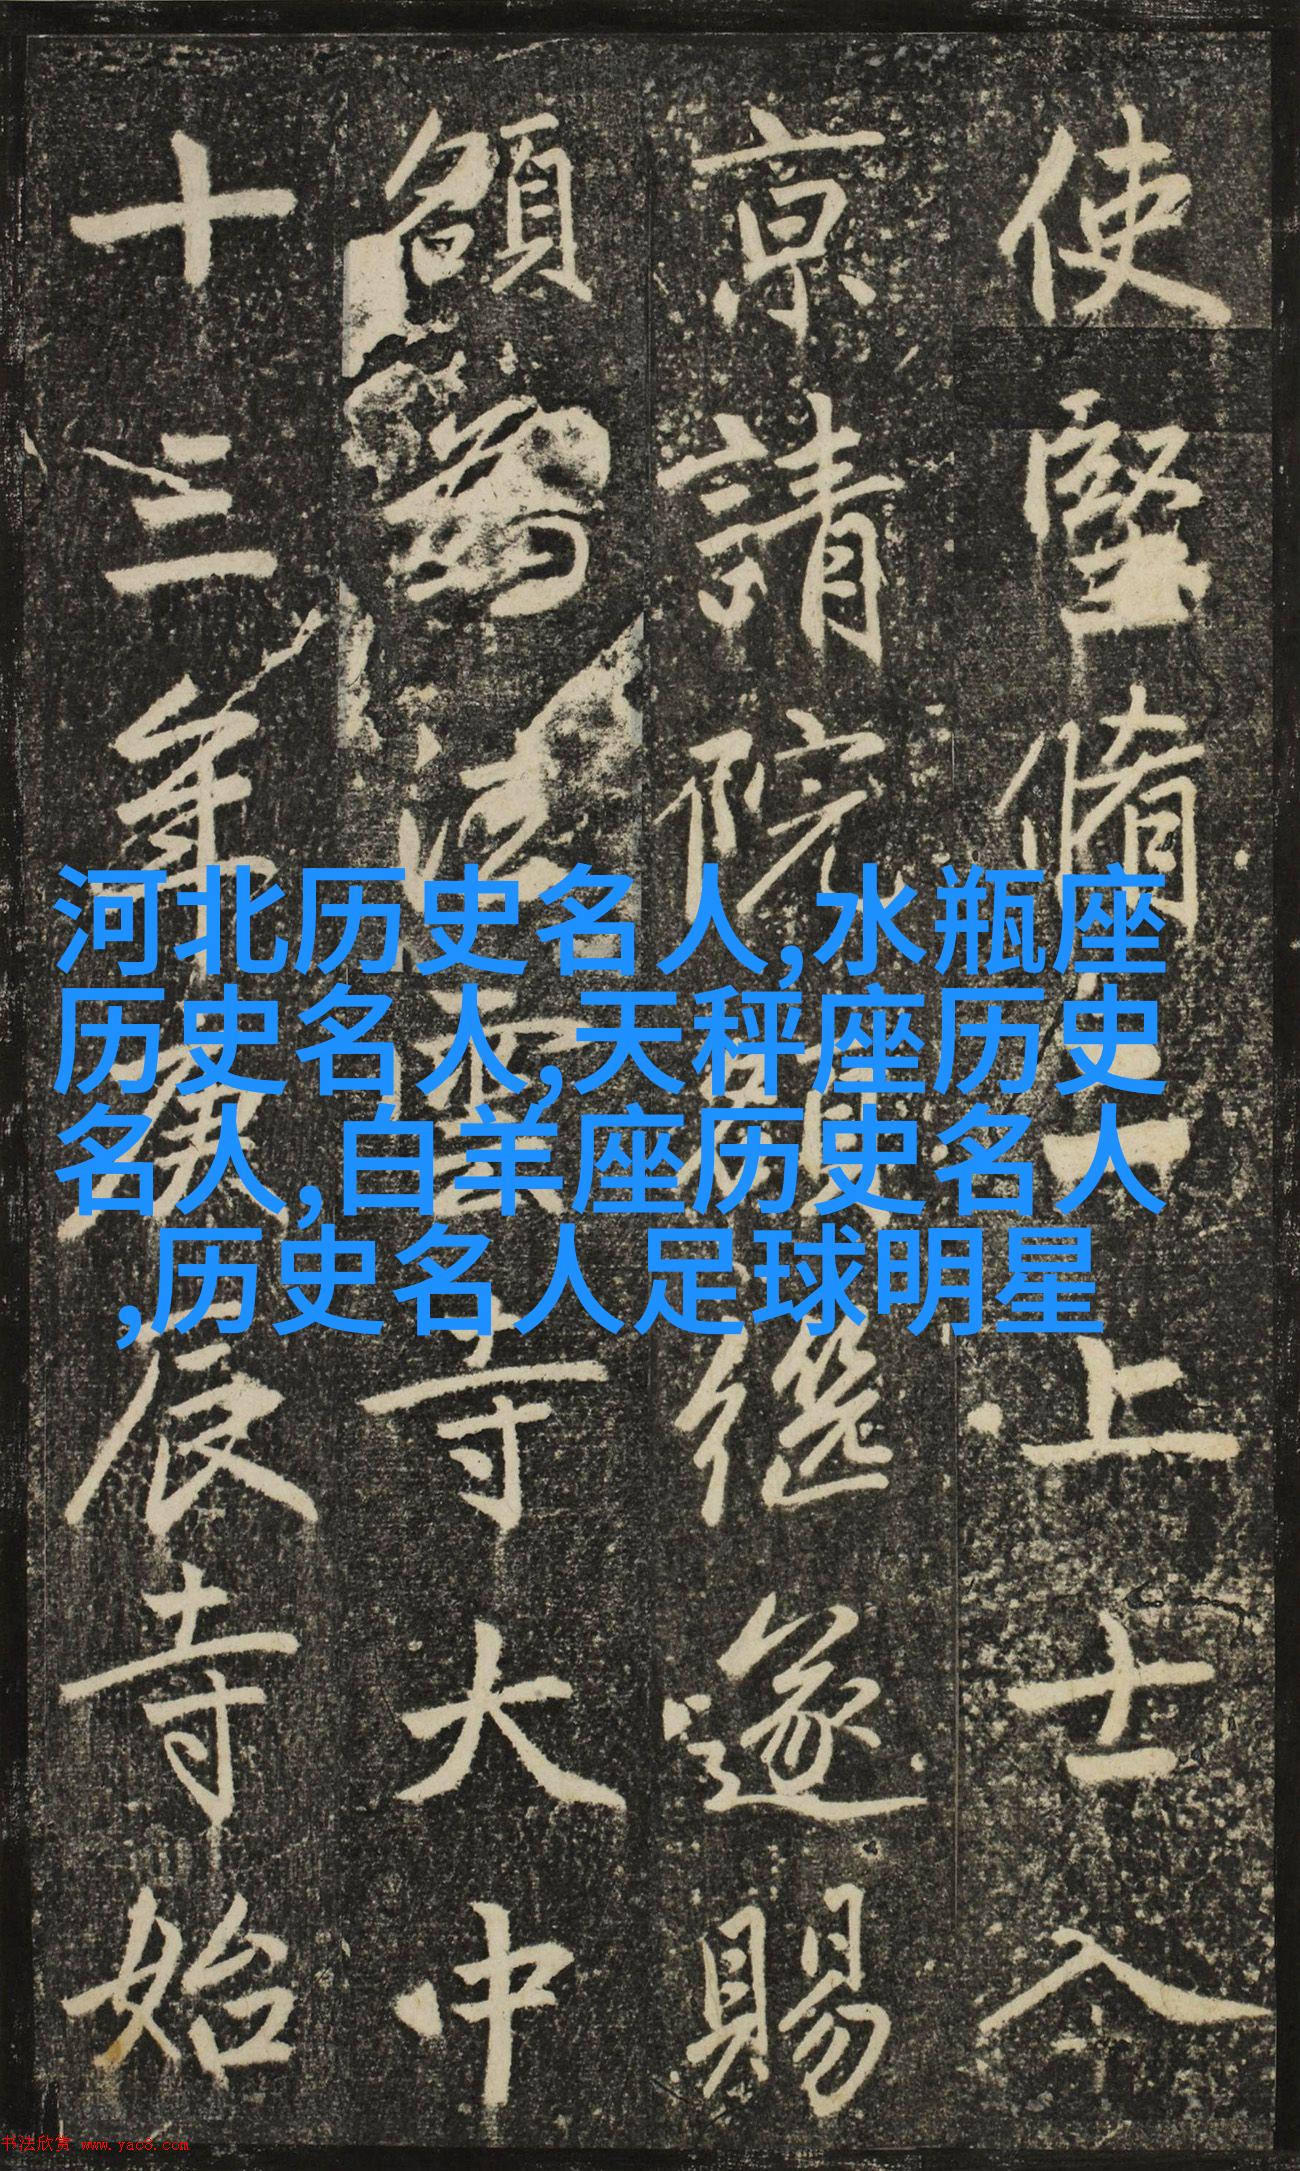 使堅脩上士入
京請院額繼遂賜
額為法雲寺大中
十三年庚辰寺始
河北历史名人,水瓶座
历史名人,天秤座历史
名人,白羊座历史名人
,历史名人足球明星
书法欣赏 www.yac8.com